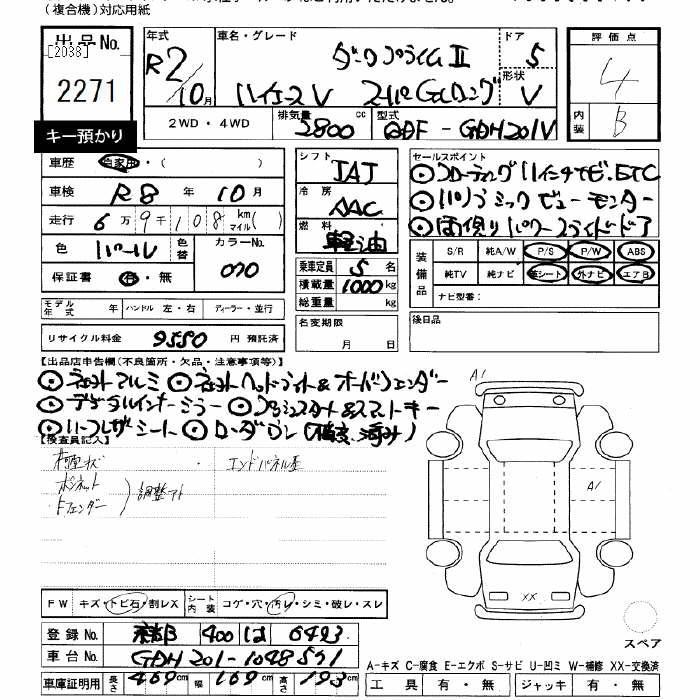 (複合機)対応用紙
出品No.
[2038]
2271
キー預かり
年式
R2/10月
車名・グレード
ダークプライムⅡ
ハイエースV スーパーGLロング
ドア
5
形状
V
評価点
4
内装
B
2WD・4WD
排気量
2800 cc
型式
QDF-GDH201V
車歴
自家用・( )
車検
R8年10月
走行
6万9千108 km マイル( )
色
パール
色替
カラーNo.
070
保証書
有・無
シフト
IAT
冷房
AAC
燃料
軽油
乗車定員 5名
積載量 1000 kg
総重量 kg
セールスポイント
◎フローティング11インチナビ、ETC
◎パノラミックビューモンター
◎両側パワースライドドア
装備品
S/R 純A/W P/S P/W ABS
純TV 純ナビ 革シート 外ナビ エアB
ナビ型番:
モデル年式 年 ハンドル 左・右 ディーラー・並行
リサイクル料金 9550 円 預託済
名変期限
月 日
後日品
【出品店申告欄(不良箇所・欠品・注意事項等)】
◎デジタルインナーミラー ◎プッシュスタート&スマートキー
◎ハーフレザーシート ◎ローダウン(構変済み)
【検査員記入】
ボンネット
Fフェンダー
調整アト
エンドパネル歪
A1
A1
XX
FW キズ・トビ石・割レX
シート内装 コゲ・穴・汚レ・シミ・破レ・スレ
登録No. 400 は 6493
車台No. GDH201-1048571
車庫証明用 長さ 469cm 幅 169cm 高さ 193cm
スペア
A-キズ C-腐食 E-エクボ S-サビ U-凹ミ W-補修 XX-交換済
工具 有・無 ジャッキ 有・無